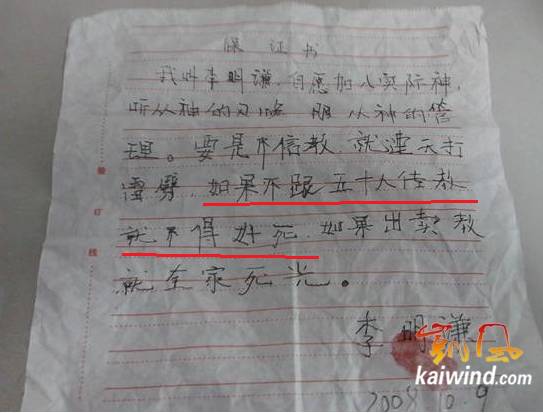 保证书
我叫李明谦,自愿加入实际神,
听从神的 服从神的管
理。要是不信教 就遭天打
雷劈 如果不跟五十人传教
就不得好死 如果出卖教
就全家死光。
李明谦
2008 10.9
凯风
kaiwind.com
装
订
线